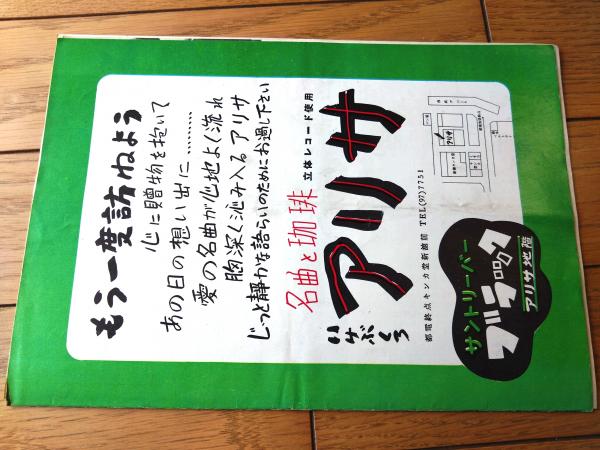 もう一度訪ねよう
心に贈物を抱いて
あの日の想い出に………
愛の名曲が心地よく流れ
胸深く沁み入るアリサ
じっと静かな語らいのためにお過し下さい
名曲と珈琲
立体レコード使用
アリサ
いけぶくろ
都電終点キンカ堂新館前 TEL(97)7751
アリサ
サントリーバー
ブラック
アリサ地産